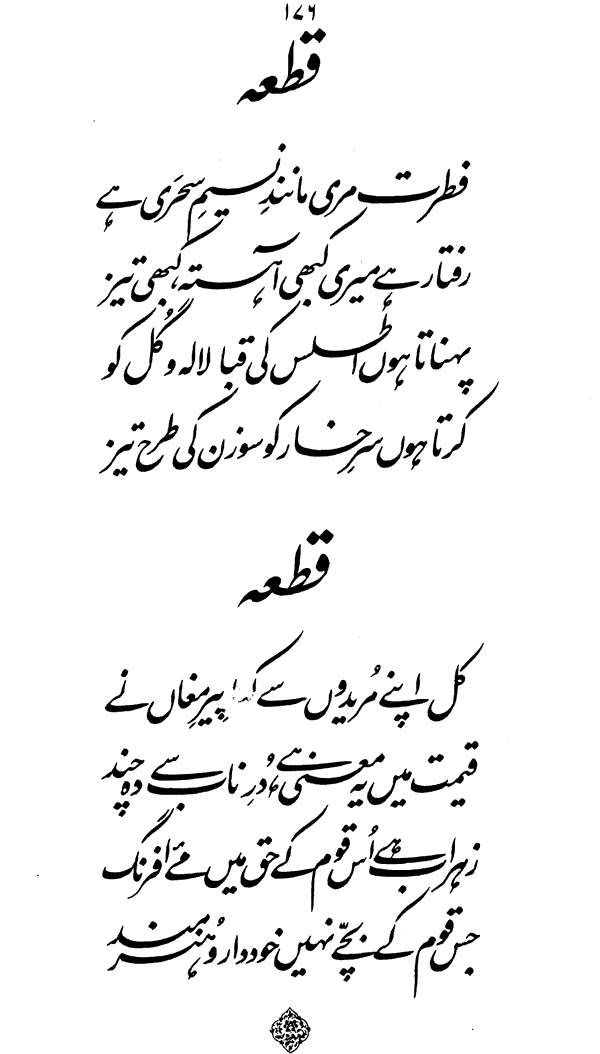 ۱۷۶
قطعہ
فطرت مری مانندِ نسیمِ سحَری ہے
رفتار ہے میری کبھی آہستہ، کبھی تیز
پہناتا ہوں اطلس کی قبا لالہ و گُل کو
کرتا ہوں سرِ خار کو سوزن کی طرح تیز
قطعہ
کل اپنے مُریدوں سے کہا پِیرِ مغاں نے
قیمت میں یہ معنی ہے دُرِ ناب سے دہ چند
زہراب ہے اُس قوم کے حق میں مئے افرنگ
جس قوم کے بچّے نہیں خوددار و ہُنرمند